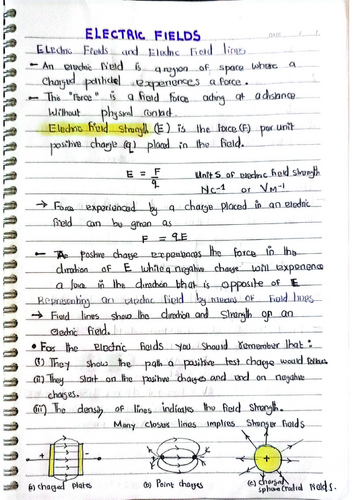 ELECTRIC FIELDS
DATE / /
Electric Fields and Electric Field lines
- An electric field is a region of space where a
charged particle experiences a force.
- This "Force" is a field force acting at a distance
Without physical contact.
Electric Field Strength (E) is the force (F) per unit
positive charge (q) placed in the field.
E = F/q Units of electric field strength
NC⁻¹ or VM⁻¹
→ Force experienced by a charge placed in an electric
field can be given as
F = qE
- The positive charge experiences the force in the
direction of E while a negative charge will experience
a force in the direction that is opposite of E
Representing an electric field by means of Field lines
→ Field lines show the direction and strength of an
electric field.
• For the electric fields you should remember that:
(i) They show the path a positive test charge would follow.
(ii) They start on the positive charges and end on negative
charges.
(iii) The density of lines indicates the field strength.
Many closer lines implies stronger fields
(a) charged plates (b) Point charges (c) charged
sphere (radial fields).